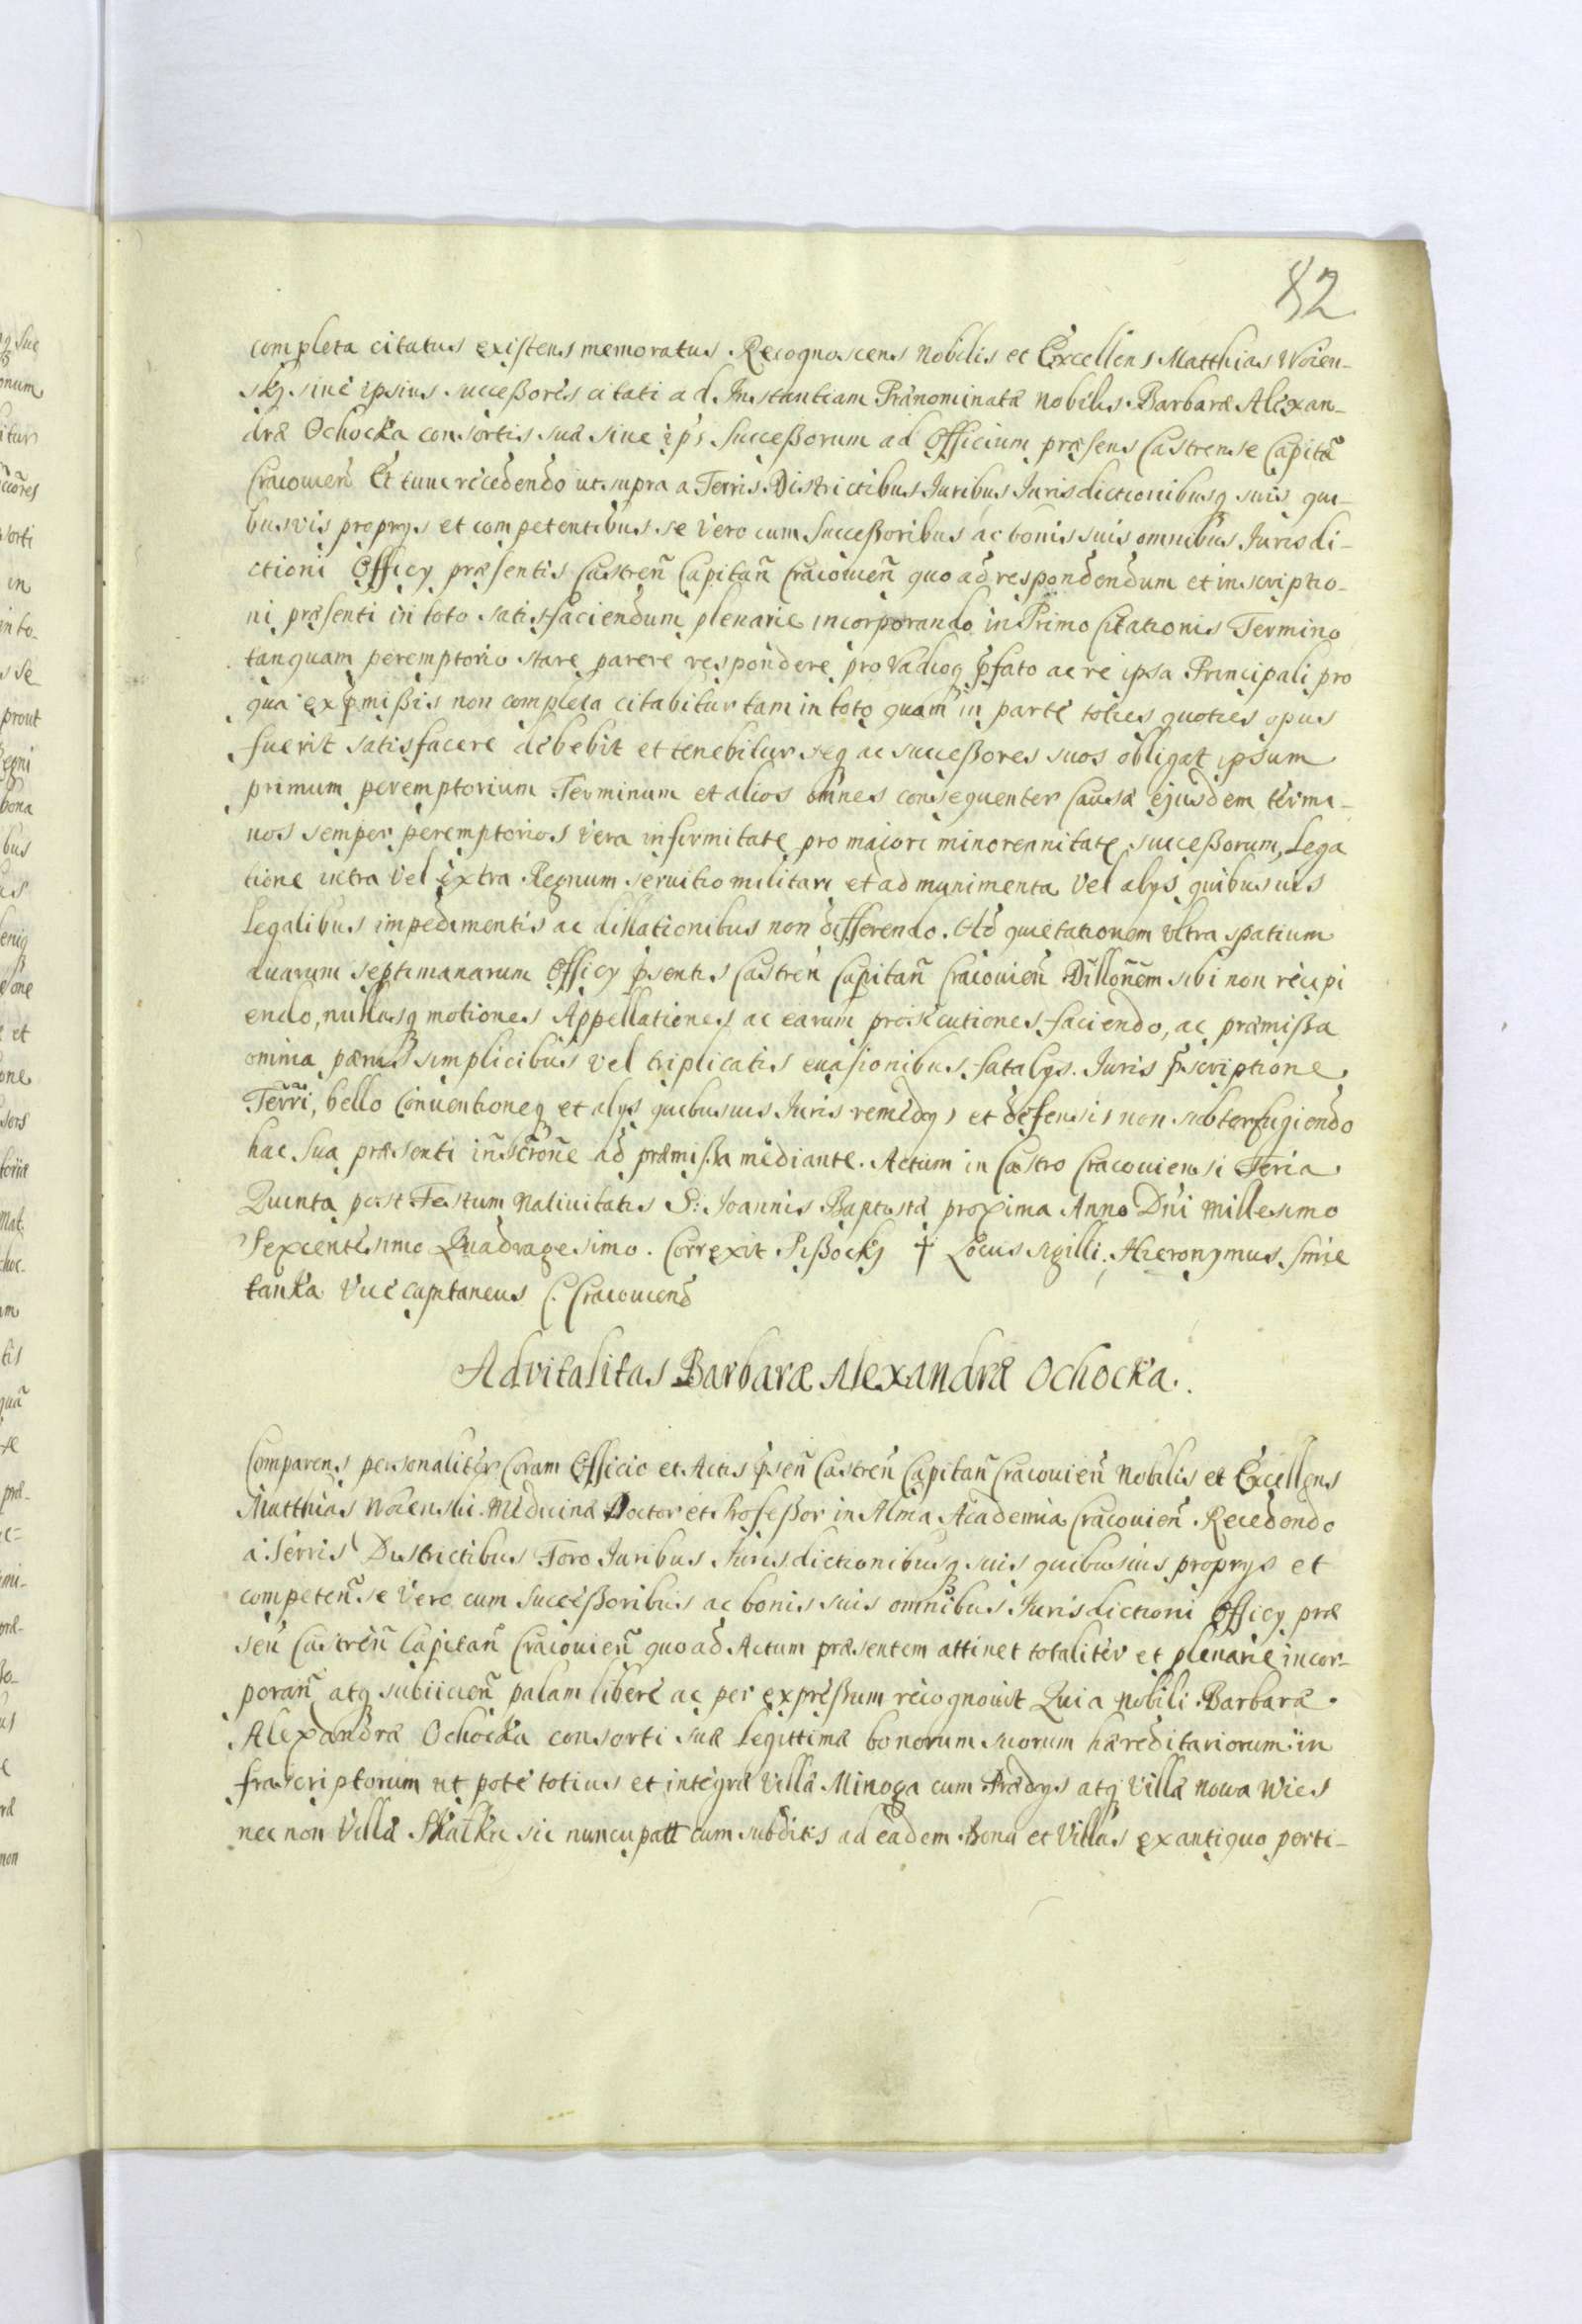 82
completa citatus existens memoratus Recognoscens Nobilis et Excellens Matthias Woien-
skỳ siue ipsius successores citati ad Instantiam Prænominatæ Nobilis Barbaræ Alexan-
dræ Ochocka consortis suæ siue ips successorum ad Officium præsens Castrense Capitã
Cracouień Et tunc recedendo ut supra a Terris Districtibus Juribus Jurisdictionibusq suis qui-
busvis proprys et competentibus se vero cum successoribus ac bonis suis omnibus Jurisdi-
ctioni Officy præsentis Castreñ Capitañ Cracouieñ quo ad respondendum et inscriptio-
ni præsenti in toto satisfaciendum plenarie incorporando in Primo Citationis Termino
tanquam peremptorio stare parere respondere pro Vadioq pfato ac re ipsa Principali pro
qua ex pmissis non completa citabitur tam in toto quam in parte toties quoties opus
fuerit satisfacere debebit et tenebitur seq ac successores suos obligat ipsum
primum peremptorium Terminum et alios omnes consequenter Causæ ejusdem termi-
nos semper peremptorios vera infirmitate pro maiori minorennitate successorum, Lega
tione intra vel extra Regnum seruitio militari et ad munimenta vel alys quibusuis
Legalibus impedimentis ac dillationibus non differendo. Ad quietationem vltra spatium
duarum septimanarum Officy psentis Castreñ Capitañ Cracouieñ Dillonem sibi non recipi
endo, nullasq motiones Appellationes ac earum prosecutiones faciendo, ac præmissa
omnia pænis simplicibus vel triplicatis euasionibus fatalys Juris pscriptione
Terri, bello Conuentioneq et alys quibusuis Juris remedys et defensis non subterfugiendo
hac sua præsenti inscrone ad præmissa mediante. Actum in Castro Cracouiensi Feria
Quinta post Festum Natiuitatis S: Joannis Baptistæ proxima Anno Dńi Millesimo
Sexcentesimo Quadragesimo. Correxit Pissockj † Locus sigilli. Hieronymus Smie
tanka Vice capitaneus C. Cracouiens
Advitalitas Barbaræ Alexandræ Ochocka.
Comparens personaliter Coram Officio et Actis pseñ Castreñ Capitañ Cracouień Nobilis et Excellens
Matthias Woienski Medicinæ Doctor et Professor in Alma Academia Cracouień Recedendo
a Terris Districtibus Foro Juribus Jurisdictionibusq suis quibusuis proprys et
competeñ se vero cum successoribus ac bonis suis omnibus Jurisdictioni Officy præ
señ Castreñ Capitañ Cracouieñ quo ad Actum præsentem attinet totaliter et plenarie incor-
porañ atq subiicień palam libere ac per expressum recognouit Quia Nobili Barbaræ
Alexandræ Ochocka consorti suæ Legittimæ bonorum suorum hæreditariorum in
frascriptorum ut pote totius et integræ Villæ Minoga cum Prædys atq Villæ Nowa Wies
nec non Villæ Skałki sic nuncupatt cum subditis ad eadem Bona et Villas ex antiquo perti-